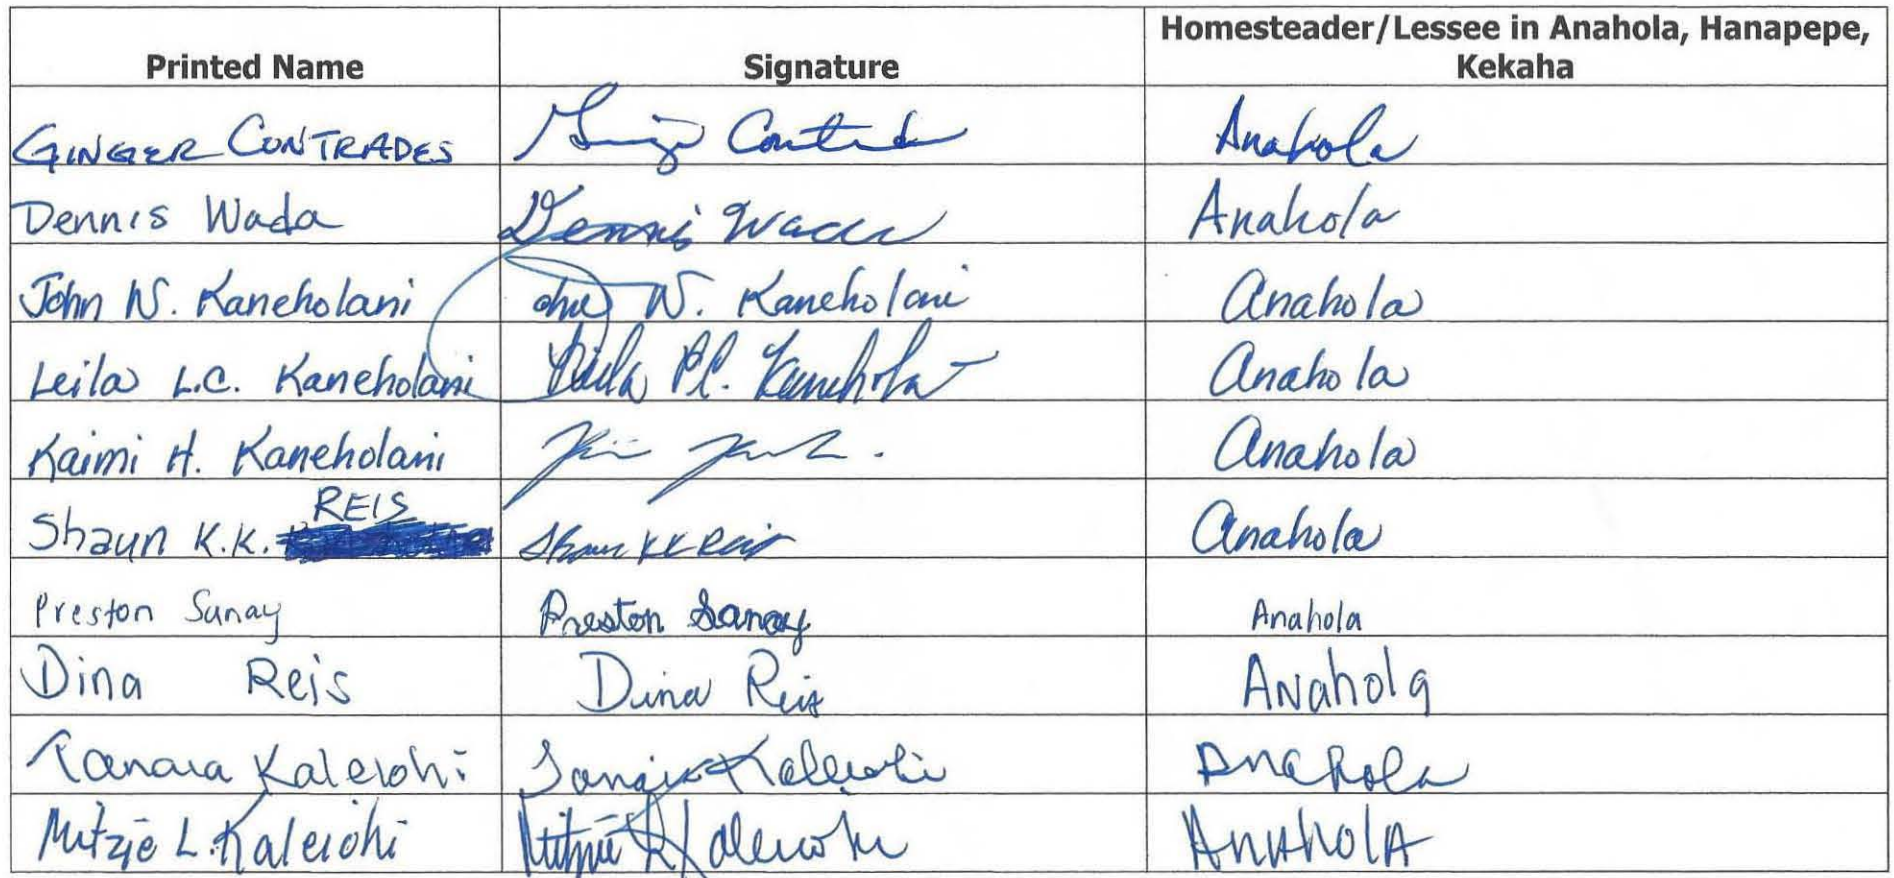 Printed Name Signature Homesteader/Lessee in Anahola, Hanapepe,
Kekaha
GINGER CONTRADES Contrades Anahola
Dennis Wada Dennis Wada Anahola
John W. Kaneholani John W. Kaneholani Anahola
Leila L.C. Kaneholani Leila Anahola
Kaimi H. Kaneholani Anahola
REIS
Shaun K.K. Shaun KK Reis Anahola
Preston Sanay Preston Sanay Anahola
Dina Reis Dina Reis Anahola
Kaleiohi Kaleiohi Anahola
Mitzie L. Kaleiohi Mitzie Kaleiohi ANAHOLA